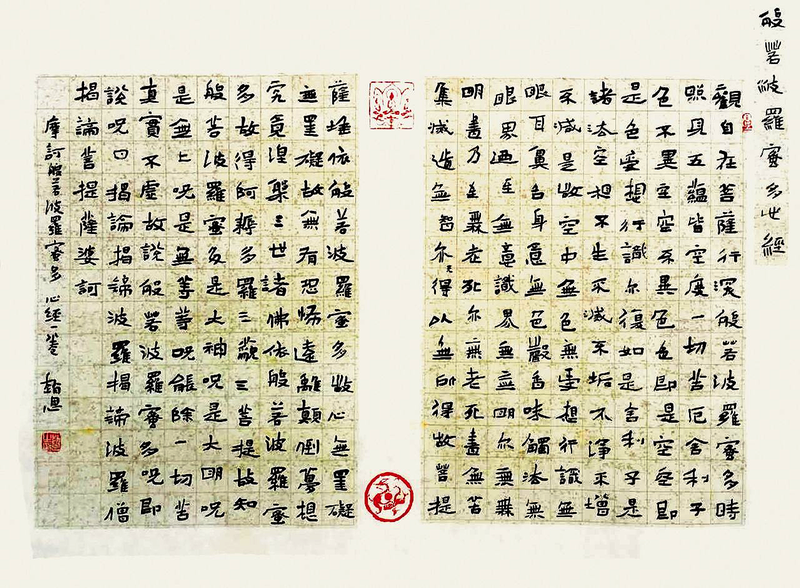 般若波羅蜜多心經
觀自在菩薩行深般若波羅蜜多時
照見五蘊皆空度一切苦厄舍利子
色不異空空不異色色即是空空即
是色受想行識亦復如是舍利子是
諸法空相不生不滅不垢不淨不增
不減是故空中無色無受想行識無
眼耳鼻舌身意無色聲香味觸法無
眼界乃至無意識界無無明亦無無
明盡乃至無老死亦無老死盡無苦
集滅道無智亦无得以無所得故菩提
薩埵依般若波羅蜜多故心無罣礙
無罣礙故無有恐怖遠離顛倒夢想
究竟涅槃三世諸佛依般若波羅蜜
多故得阿耨多羅三藐三菩提故知
般若波羅蜜多是大神呪是大明呪
是無上呪是無等等呪能除一切苦
真實不虛故說般若波羅蜜多呪即
說呪曰揭諦揭諦波羅揭諦波羅僧
揭諦菩提薩婆訶
摩訶般若波羅蜜多心經一卷